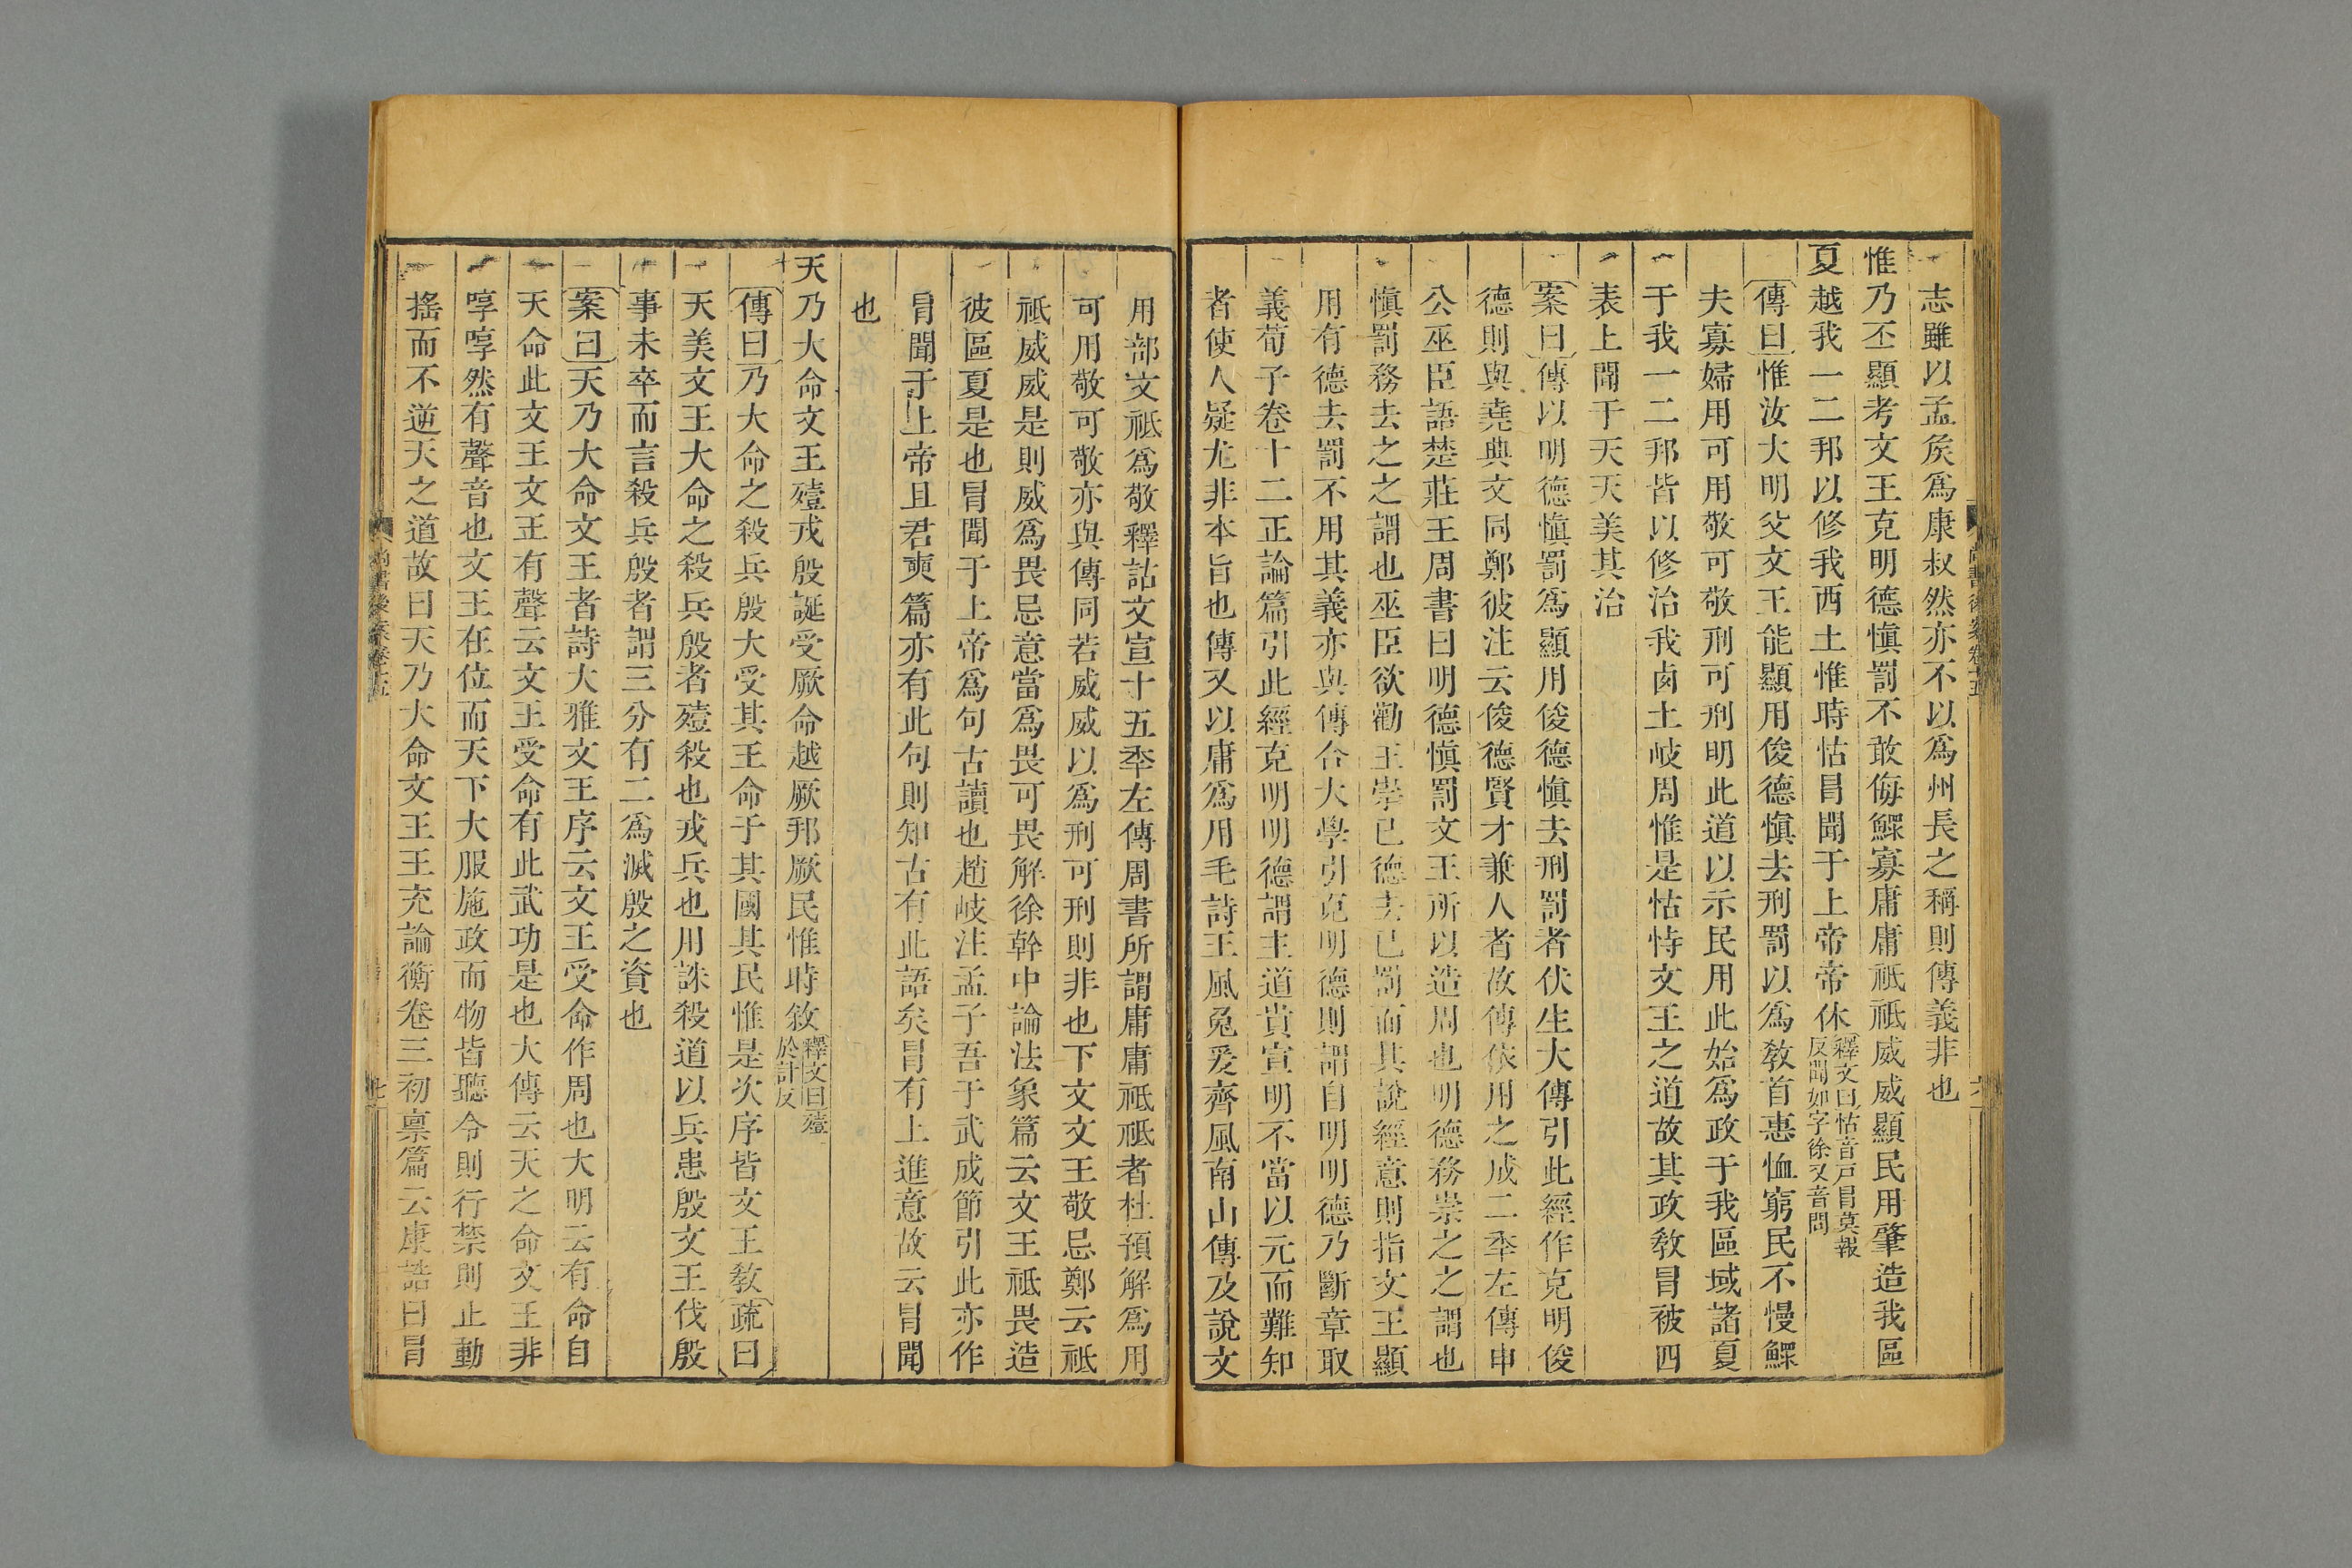 志雖以孟矦爲康叔然亦不以爲州長之稱則傳義非也
惟乃丕顯考文王克明德愼罰不敢侮鰥寡庸庸祗祗威威顯民用肇造我區
夏越我一二邦以修我西土惟時怙冒聞于上帝帝休釋文曰怙音戸冒莫報
反聞如字徐又音問
傳曰惟汝大明父文王能顯用俊德愼去刑罰以爲敎首惠恤窮民不慢鰥
夫寡婦用可用敬可敬刑可刑明此道以示民用此始爲政于我區域諸夏
于我一二邦皆以修治我卤土岐周惟是怙恃文王之道故其政敎冒被四
表上聞于天天美其治
案曰傳以明德愼罰爲顯用俊德愼去刑罰者伏生大傳引此經作克明俊
德則與堯典文同鄭彼注云俊德賢才兼人者故傳依用之成二秊左傳申
公巫臣語楚莊王周書曰明德愼罰文王所以造周也明德務崇之之謂也
愼罰務去之之謂也巫臣欲勸王崇已德去已罰而其說經意則指文王顯
用有德去罰不用其義亦與傳合大學引克明德則謂自明明德乃斷章取
義荀子卷十二正論篇引此經克明明德謂主道貴宣明不當以元而難知
者使人疑尤非本旨也傳又以庸爲用毛詩王風兔爰齊風南山傳及說文
用部文祗爲敬釋詁文宣十五秊左傳周書所謂庸庸祗祗者杜預解爲用
可用敬可敬亦與傳同若威威以爲刑可刑則非也下文文王敬忌鄭云祗
祗威威是則威爲畏忌意當爲畏可畏解徐幹中論法象篇云文王祗畏造
彼區夏是也冒聞于上帝爲句古讀也趙岐注孟子吾于武成節引此亦作
冒聞于上帝且君奭篇亦有此句則知古有此語矣冒有上進意故云冒聞
也
天乃大命文王殪戎殷誕受厥命越厥邦厥民惟時敘釋文曰殪
於計反
傳曰乃大命之殺兵殷大受其王命于其國其民惟是次序皆文王敎疏曰
天美文王大命之殺兵殷者殪殺也戎兵也用誅殺道以兵患殷文王伐殷
事未卒而言殺兵殷者謂三分有二爲滅殷之資也
案曰天乃大命文王者詩大雅文王序云文王受命作周也大明云有命自
天命此文王文王有聲云文王受命有此武功是也大傳云天之命文王非
啍啍然有聲音也文王在位而天下大服施政而物皆聽令則行禁則止動
搖而不逆天之道故曰天乃大命文王王充論衡卷三初稟篇云康誥曰冒
尚書後案卷十五
七